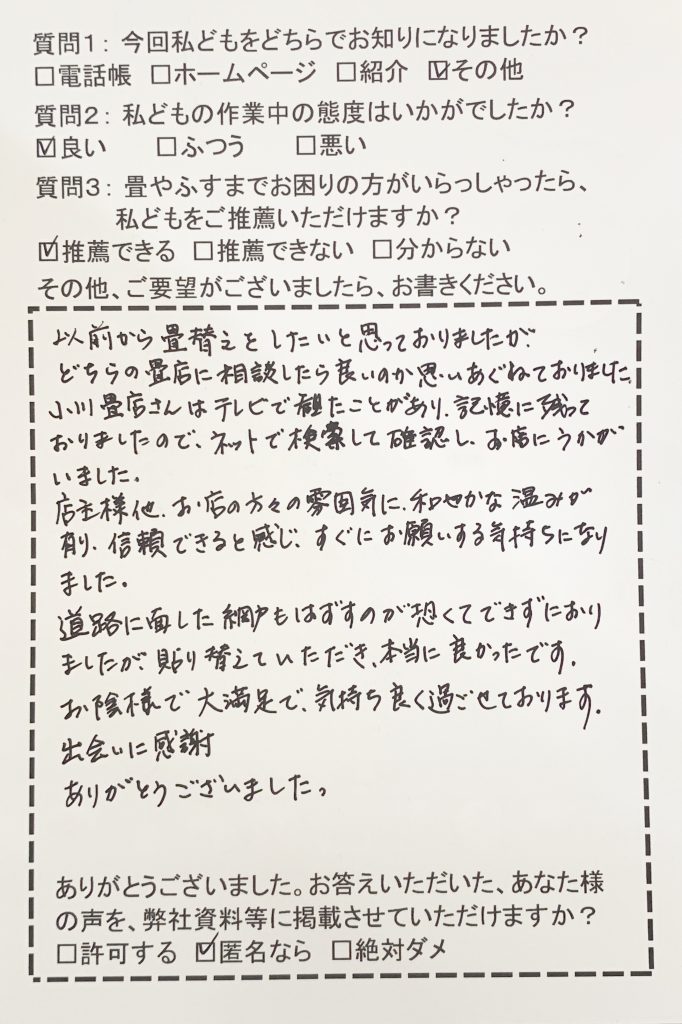 質問1：今回私どもをどちらでお知りになりましたか？
□電話帳 □ホームページ □紹介 ☑その他
質問2：私どもの作業中の態度はいかがでしたか？
☑良い □ふつう □悪い
質問3：畳やふすまでお困りの方がいらっしゃったら、
私どもをご推薦いただけますか？
☑推薦できる □推薦できない □分からない
その他、ご要望がございましたら、お書きください。
以前から畳替えをしたいと思っておりましたが、
どちらの畳店に相談したら良いのか思いあぐねておりました。
小川畳店さんはテレビで観たことがあり、記憶に残って
おりましたので、ネットで検索して確認し、お店にうかが
いました。
店主様他、お店の方々の雰囲気に、和やかな温みが
有り、信頼できると感じ、すぐにお願いする気持ちになり
ました。
道路に面した網戸もはずすのが恐くてできずにおり
ましたが、貼り替えていただき、本当に良かったです。
お陰様で大満足で、気持ち良く過ごせております。
出会いに感謝
ありがとうございました。
ありがとうございました。お答えいただいた、あなた様
の声を、弊社資料等に掲載させていただけますか？
□許可する ☑匿名なら □絶対ダメ